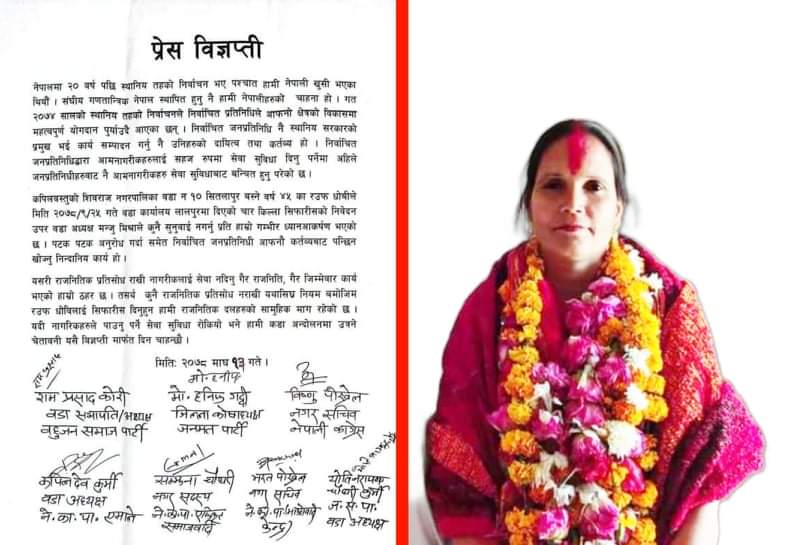 प्रेस विज्ञप्ती
नेपालमा २० वर्ष पछि स्थानिय तहको निर्वाचन भए पश्चात हामी नेपाली खुसी भएका
थियौं । संघीय गणतान्त्रिक नेपाल स्थापित हुनु नै हामी नेपालीहरुको चाहना हो । गत
२०७४ सालको स्थानिय तहको निर्वाचनले निर्वाचित प्रतिनिधिले आफनो क्षेत्रको विकासमा
महत्वपुर्ण योगदान पुर्याउदै आएका छन् । निर्वाचित जनप्रतिनिधि नै स्थानिय सरकारको
प्रमुख भई कार्य सम्पादन गर्नु नै उनिहरुको दायित्व तथा कर्तव्य हो । निर्वाचित
जनप्रतिनिधिद्वारा आमनागरीकहरुलाई सहज रुपमा सेवा सुविधा दिनु पर्नेमा अहिले
जनप्रतिनिधीहरुबाट नै आमनागरीकहरु सेवा सुविधाबाट बन्चित हुनु परेको छ ।
कपिलवस्तुको शिवराज नगरपालिका वडा न १० सितलापुर बस्ने वर्ष ४५ का रउफ धोबीले
मिति २०७८/९/२५ गते वडा कार्यालय लालपुरमा दिएको चार किल्ला सिफारीसको निवेदन
उपर वडा अध्यक्ष मन्जु मिश्राले कुनै सुनुवाई नगर्नु प्रति हाम्रो गम्भीर ध्यानआकर्षण भएको
छ । पटक पटक अनुरोध गर्दा समेत निर्वाचित जनप्रतिनिधी आफनौ कर्तव्यबाट पन्छिन
खोज्नु निन्दानिय कार्य हो ।
यसरी राजनितिक प्रतिसोध राखी नागरीकलाई सेवा नदिनु गैर राजनिति, गैर जिम्मेवार कार्य
भएको हाम्रो ठहर छ । तसर्थ कुनै राजनितिक प्रतिसोध नराखी यथासिघ्र नियम बमोजिम
रउफ धोविलाई सिफारीस दिनुहुन हामी राजनितिक दलहरुको सामुहिक माग रहेको छ ।
यदी नागरिकहरुले पाउनु पर्ने सेवा सुविधा रोकियो भने हामी कडा अन्दोलनमा उत्रने
चेतावनी यसै विज्ञप्ती मार्फत दिन चाहन्छौ ।
मितिः २०७८ माघ १३ गते ।
राम प्रसाद कोरी
वडा सभापति/अध्यक्ष
बहुजन समाज पार्टी
मो. हनिफ
मो. हनिफ गद्दी
जिल्ला कोषाध्यक्ष
जनमत पार्टी
विष्णु पोख्रेल
नगर सचिव
नेपाली काँग्रेस
कपिलदेव कुर्मी
वडा अध्यक्ष
ने. क. पा. एमाले
चौधरी
नगर सदस्य
समाजवादी
भरत पोख्रेल
नगर सचिव
केन्द्र
कुर्मी
ज. स. पा.
वडा अध्यक्ष